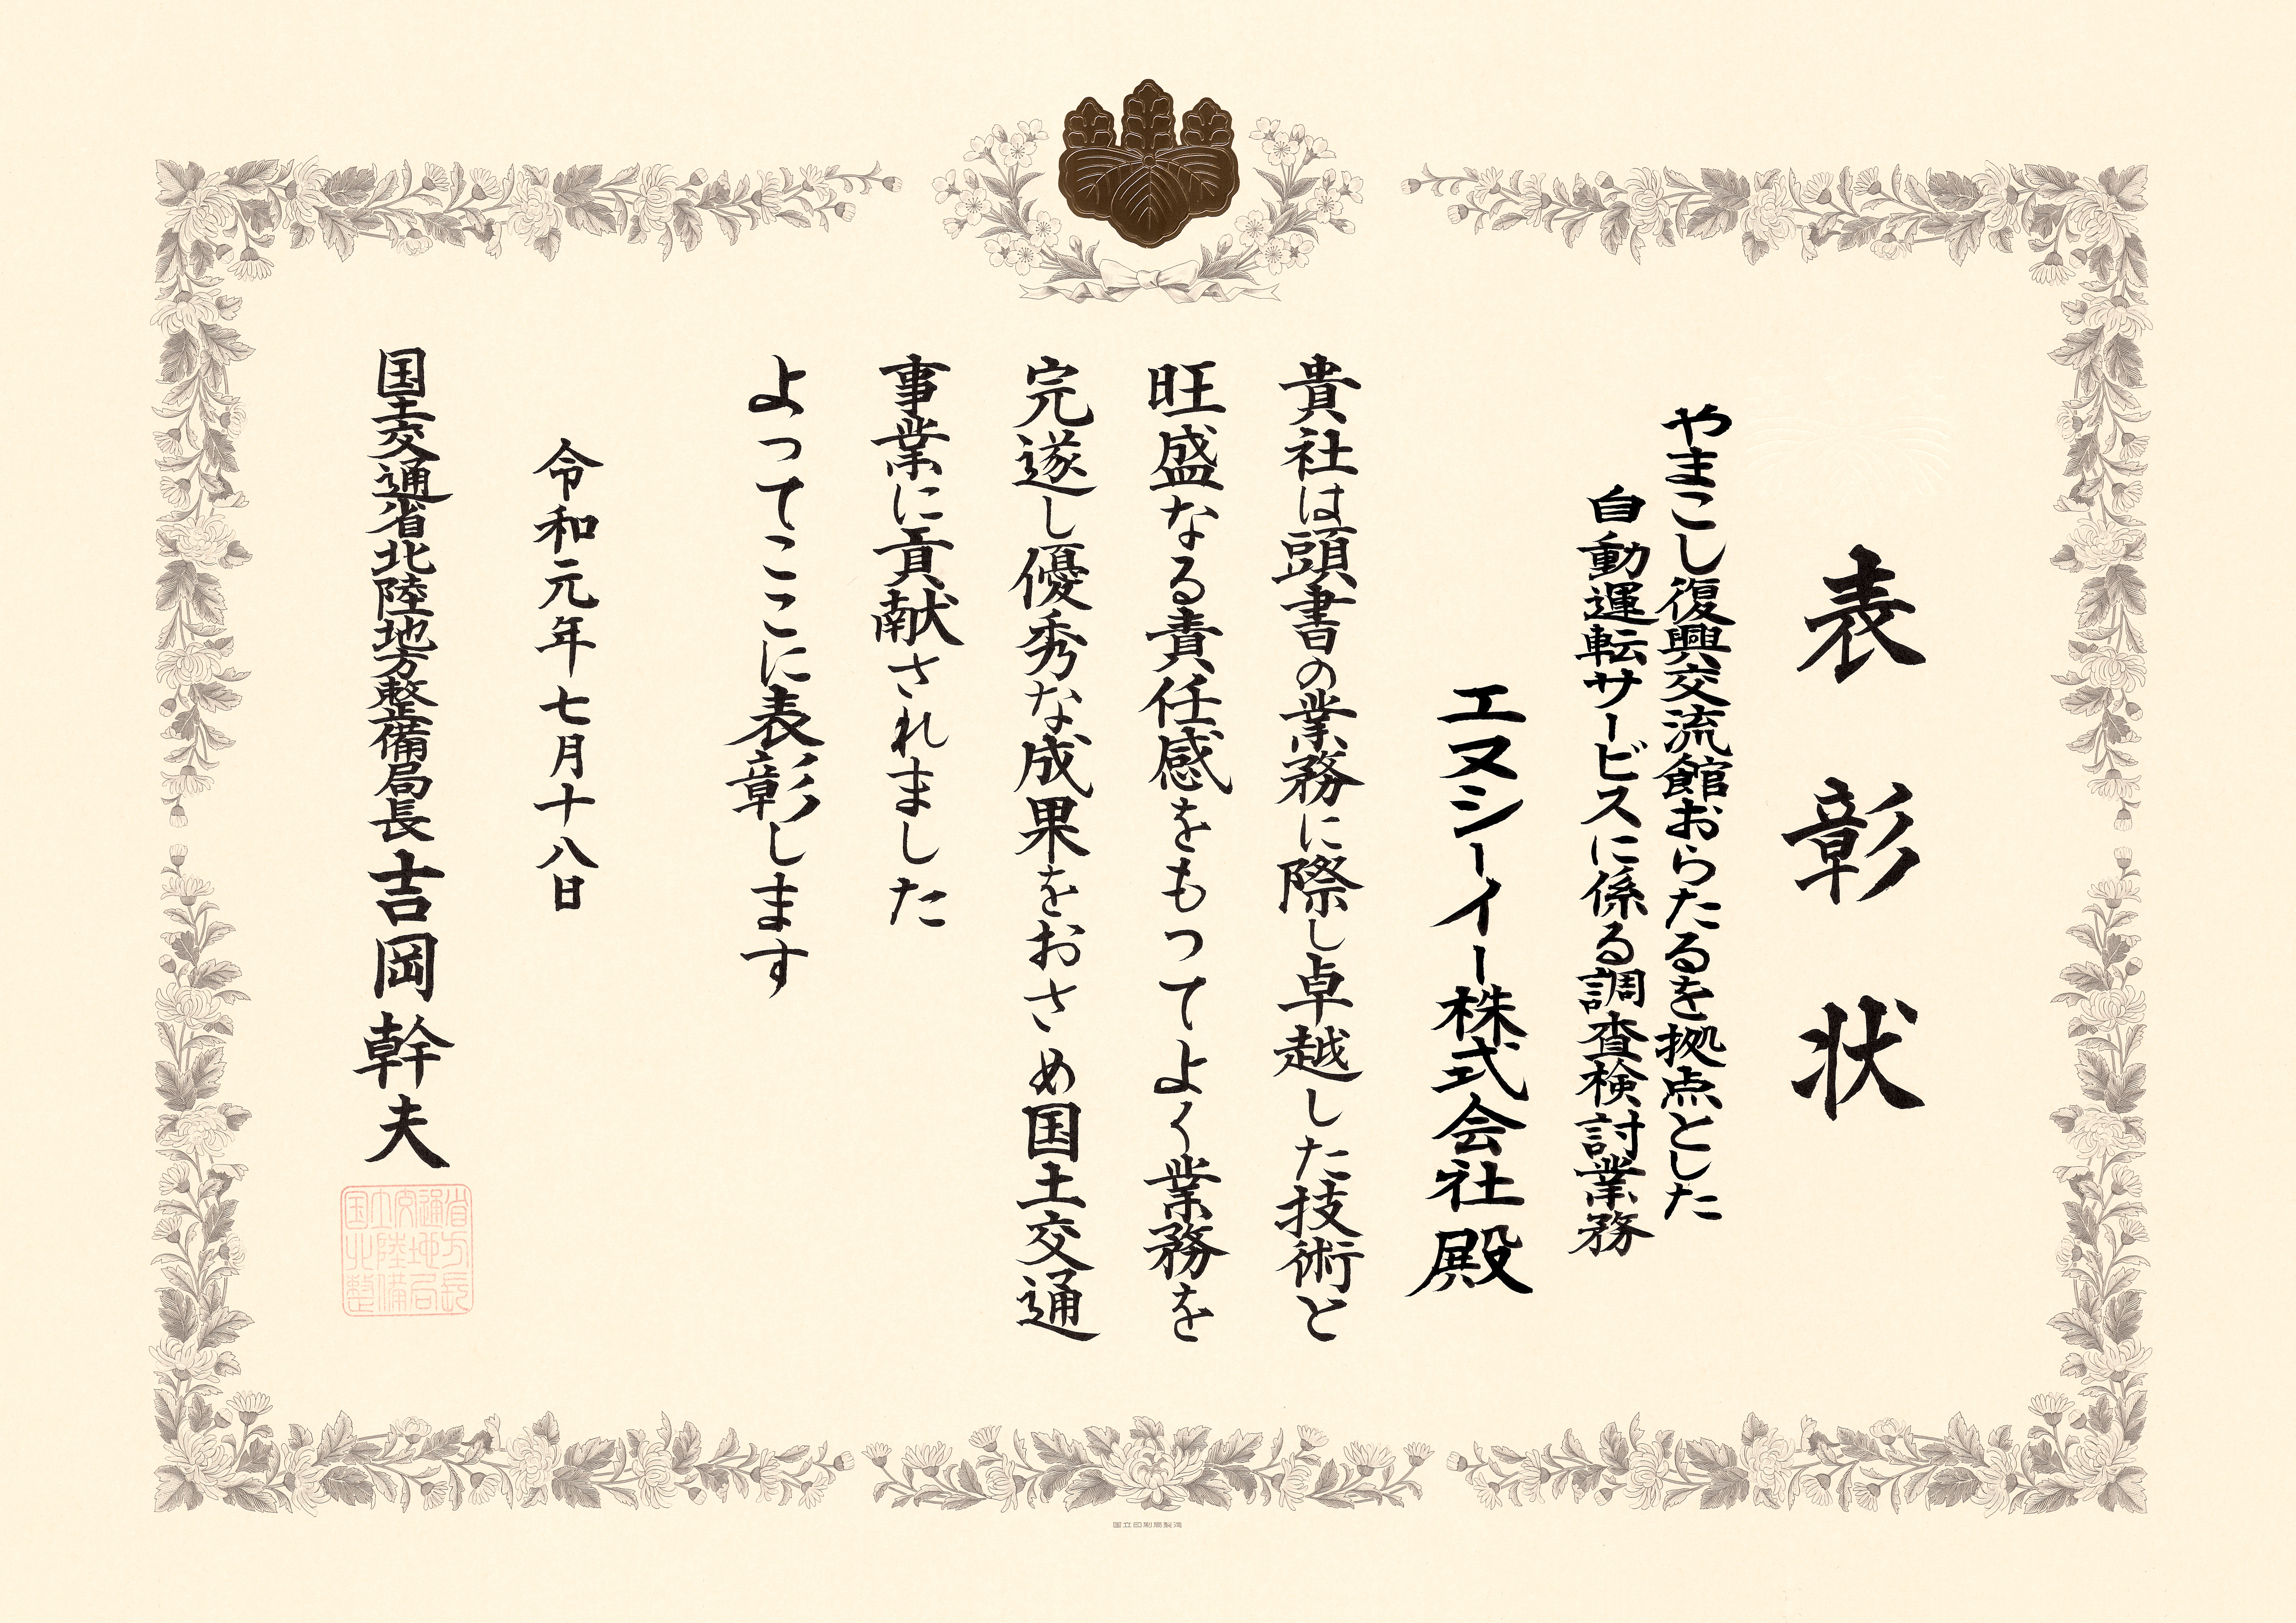 表彰状
やまこし復興交流館おらたるを拠点とした
自動運転サービスに係る調査検討業務
エヌシーイー株式会社殿
貴社は頭書の業務に際し卓越した技術と
旺盛なる責任感をもつてよく業務を
完遂し優秀な成果をおさめ国土交通
事業に貢献されました
よってここに表彰します
令和元年七月十八日
国土交通省北陸地方整備局長吉岡幹夫
国土交通省
北陸地方
整備局長
国立印刷局製造